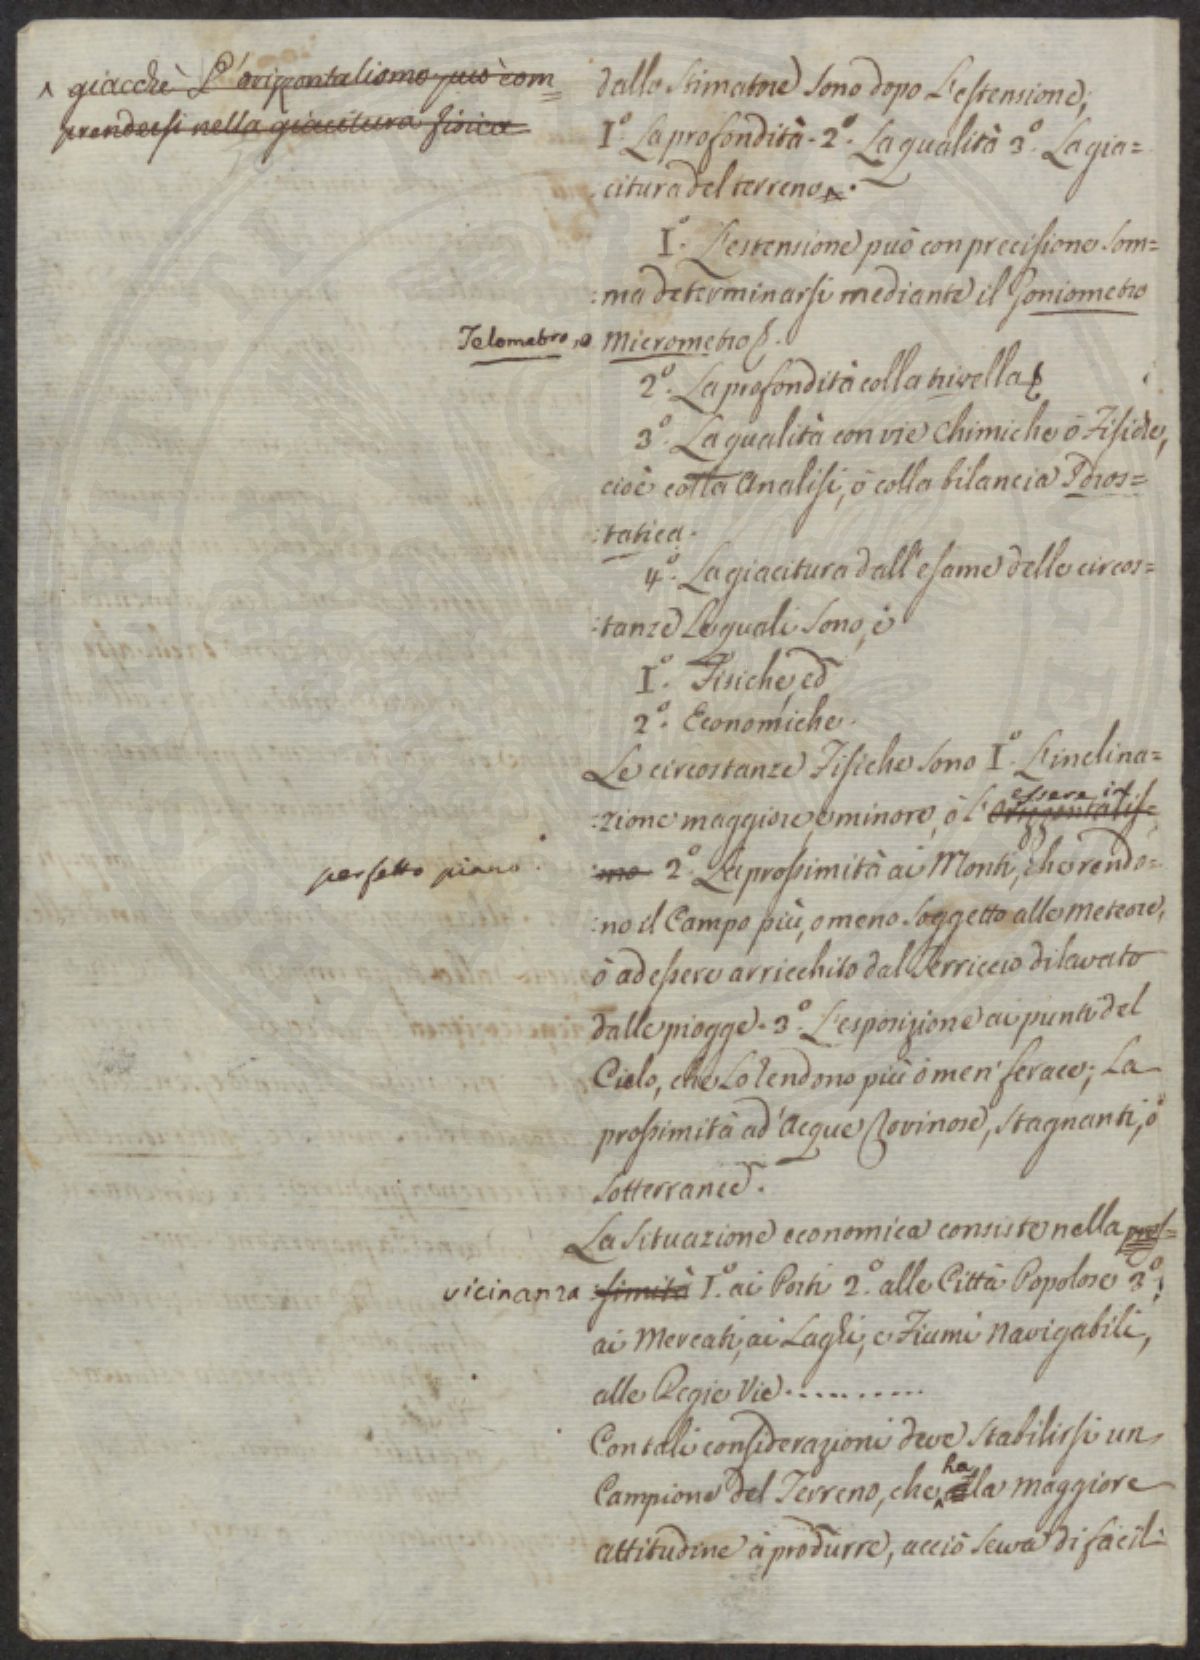 giacchè l'orizzontalismo può com=
prendersi nella giacitura fisica
dallo Stimatore sono dopo L'estensione;
I.° La profondità - 2.° La qualità 3.° La gia=
citura del terreno.
I.° L'estensione può con precisione som=
:ma determinarsi mediante il Goniometro
Telometro, o Micrometro.
2.° La profondità colla trivella
3.° La qualità con vie Chimiche ò Fisiche,
cioè colla Analisi, ò colla bilancia Idros=
:tatica.
4.° La giacitura dall'esame delle circos=
:tanze Le quali sono, è
I.° Fisiche, ed
2.° Economiche.
Le circostanze Fisiche sono I.° L'inclina=
essere in
:zione maggiore, o minore, ò l'Orizontalis=
perfetto piano :mo 2.° La prossimità ai Monti, che rendo=
:no il Campo più, o meno soggetto alle meteore,
ò ad essere arricchito dal Terriccio dilavato
dalle piogge - 3.° L'esposizione ai punti del
Cielo, che Lo rendono più ò men' ferace; La
prossimità ad' Acque Rovinose, stagnanti, ò
sotterranee.
La Situazione economica consiste nella pros=
vicinanza :simità I.° ai Porti 2.° alle Città Popolose 3.°
ai Mercati, ai Laghi, e Fiumi Navigabili,
alle Regie Vie ..........
Con tali considerazioni deve stabilirsi un
ha
Campione del Terreno, che la maggiore
attitudine à produrre, acciò serva di facil